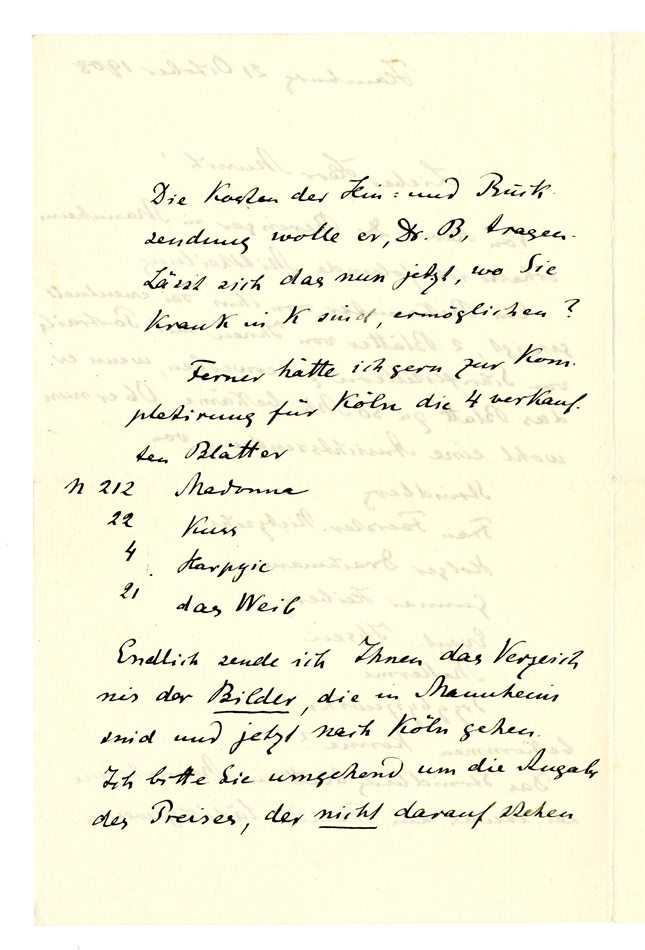 Die Kosten der Hin= und Rück-
sendung wolle er, Dr. B, tragen.
Lässt sich das nun jetzt, wo Sie
Krank in K sind, ermöglichen?
Ferner hätte ich gern zur Kom-
pletirung für Köln die 4 verkauf-
ten Blätter
N 212 Madonna
22 Kuss
4 Harpyie
21 das Weib
Endlich sende ich Ihnen das Verzeich
nis der Bilder, die in Mannheim
sind und jetzt nach Köln gehen.
Ich bitte Sie umgehend um die Angabe
des Preises, der nicht darauf stehen